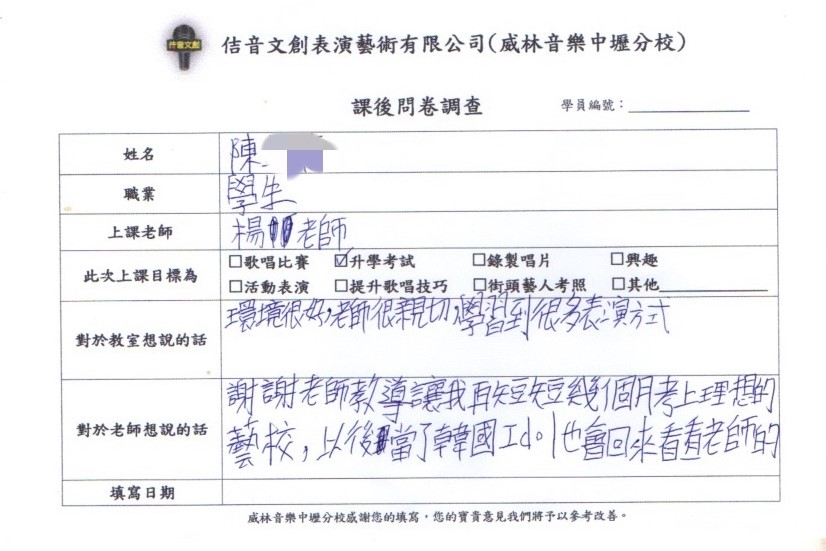 佶音文創
佶音文創表演藝術有限公司(威林音樂中壢分校)
課後問卷調查
學員編號：
姓名
陳
職業
學生
上課老師
楊 老師
此次上課目標為
□歌唱比賽 ☑升學考試 □錄製唱片 □興趣
□活動表演 □提升歌唱技巧 □街頭藝人考照 □其他
對於教室想說的話
環境很好,老師很親切,學習到很多表演方式
對於老師想說的話
謝謝老師教導讓我再短短幾個月考上理想的
藝校，以後當了韓國Idol也會回來看看老師的
填寫日期
威林音樂中壢分校感謝您的填寫，您的寶貴意見我們將予以參考改善。